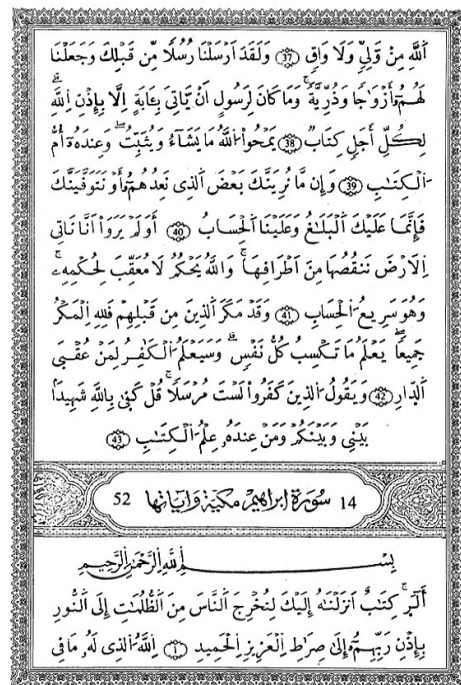 اَللَّهِ مِنْ وَّلِيٍّ وَلَا وَاقٍ 37 وَلَقَدَ اَرْسَلْنَا رُسُلًا مِّن قَبْلِكَ وَجَعَلْنَا
لَهُمُۥٓ أَزْوَٰجًا وَذُرِّيَّةً وَمَا كَانَ لِرَسُولٍ اَنْ يَّاتِيَ بِـَٔايَةٍ اِلَّا بِإِذْنِ اِللَّهِ
لِكُلِّ أَجَلٍ كِتَابٌ 38 يَمْحُوا اُللَّهُ مَا يَشَآءُ وَيُثَبِّتُ وَعِندَهُۥٓ أُمُّ
اُلْكِتَٰبِ 39 وَإِن مَّا نُرِيَنَّكَ بَعْضَ اَلَّذِي نَعِدُهُمُۥٓ أَوْ نَتَوَفَّيَنَّكَ
فَإِنَّمَا عَلَيْكَ اَلْبَلَٰغُ وَعَلَيْنَا اَلْحِسَابُ 40 أَوَلَمْ يَرَوَاْ اَنَّا نَاتِي
اِلَارْضَ نَنقُصُهَا مِنَ اَطْرَافِهَا وَاللَّهُ يَحْكُمُ لَا مُعَقِّبَ لِحُكْمِهِۦ
وَهُوَ سَرِيعُ اُلْحِسَابِ 41 وَقَدْ مَكَرَ اَلَّذِينَ مِن قَبْلِهِمْ فَلِلهِ اِلْمَكْرُ
جَمِيعًا يَعْلَمُ مَا تَكْسِبُ كُلُّ نَفْسٍ وَسَيَعْلَمُ اُلْكَٰفِرُ لِمَنْ عُقْبَى
اَلدِّارِ 42 وَيَقُولُ اُلَّذِينَ كَفَرُواْ لَسْتَ مُرْسَلًا قُلْ كَفَىٰ بِاللَّهِ شَهِيدًا
بَيْنِي وَبَيْنَكُمْ وَمَنْ عِندَهُۥ عِلْمُ اُلْكِتَٰبِ 43
14 سُورَةُ اِبْرَاهِيمَ مَكِّيَّة وَاٰيَاتُهَا 52
بِسْمِ اِللَّهِ اِلرَّحْمَٰنِ اِلرَّحِيمِ
أَلَٓرٰ كِتَٰبٌ اَنزَلْنَٰهُ إِلَيْكَ لِتُخْرِجَ اَلنَّاسَ مِنَ اَلظُّلُمَٰتِ إِلَى اَلنُّورِ
بِإِذْنِ رَبِّهِمُۥٓ إِلَىٰ صِرَٰطِ اِلْعَزِيزِ اِلْحَمِيدِ 1 اِللَّهُ اُلَّذِي لَهُۥ مَا فِي